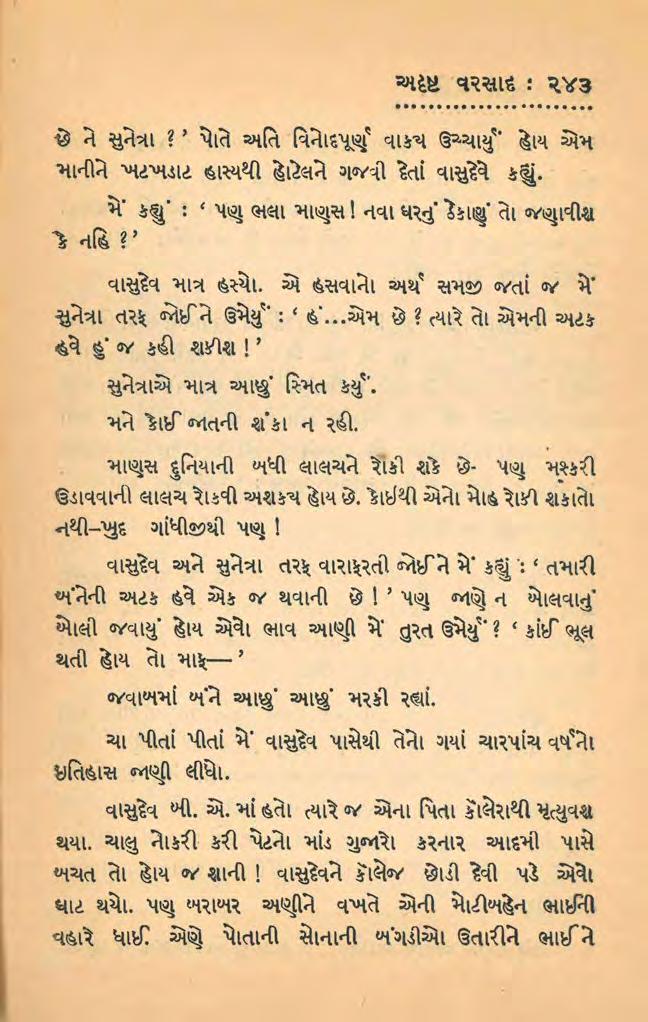 અદૃષ્ટ વરસાદ : ૨૪૩
છે ને સુનેત્રા ? ’ પોતે અતિ વિનોદપૂર્ણ વાક્ય ઉચ્ચાર્યું હોય એમ
માનીને ખટખડાટ હાસ્યથી હોટેલને ગજવી દેતાં વાસુદેવે કહ્યું.
મેં કહ્યું : ‘ પણ ભલા માણસ ! નવા ઘરનું ઠેકાણું તો જણાવીશ
કે નહિ ?’
વાસુદેવ માત્ર હસ્યો. એ હસવાનો અર્થ સમજી જતાં જ મેં
સુનેત્રા તરફ જોઈને ઉમેર્યું : ‘ હં...એમ છે ? ત્યારે તો એમની અટક
હવે હું જ કહી શકીશ ! ’
સુનેત્રાએ માત્ર આછું સ્મિત કર્યું.
મને કોઈ જાતની શંકા ન રહી.
માણસ દુનિયાની બધી લાલચને રોકી શકે છે- પણ મશ્કરી
ઉડાવવાની લાલચ રોકવી અશક્ય હોય છે. કોઇથી એનો મોહ રોકી શકાતો
નથી–ખુદ ગાંધીજીથી પણ !
વાસુદેવ અને સુનેત્રા તરફ વારાફરતી જોઈને મેં કહ્યું : ‘ તમારી
બંનેની અટક હવે એક જ થવાની છે ! ’ પણ જાણે ન બોલવાનું
બોલી જવાયું હોય એવો ભાવ આણી મેં તુરત ઉમેર્યું ? ‘ કાંઈ ભૂલ
થતી હોય તો માફ— ’
જવાબમાં બંને આછું આછું મરકી રહ્યાં.
ચા પીતાં પીતાં મેં વાસુદેવ પાસેથી તેનો ગયાં ચારપાંચ વર્ષનો
ઇતિહાસ જાણી લીધો.
વાસુદેવ બી. એ. માં હતો ત્યારે જ એના પિતા કૉલેરાથી મૃત્યુવશ
થયા. ચાલુ નોકરી કરી પેટનો માંડ ગુજારો કરનાર આદમી પાસે
બચત તો હોય જ શાની ! વાસુદેવને કૉલેજ છોડી દેવી પડે એવો
ઘાટ થયો. પણ બરાબર અણીને વખતે એની મોટીબહેન ભાઈની
વહારે ધાઈ. એણે પોતાની સોનાની બંગડીઓ ઉતારીને ભાઈને